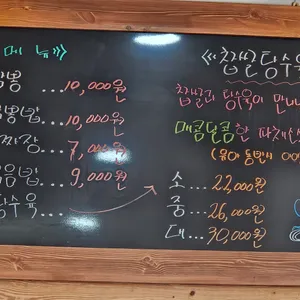 메 뉴》
짬뽕 ... 10,000원
짬뽕밥 ... 10,000원
짜장 ... 7,000원
볶음밥 ... 9,000원
탕수육 ...
《찹쌀탕수육
찹쌀과 탕수육이 만나
매콤달콤한 파채
소 ... 22,000원
중 ... 26,000원
대 ... 30,000원